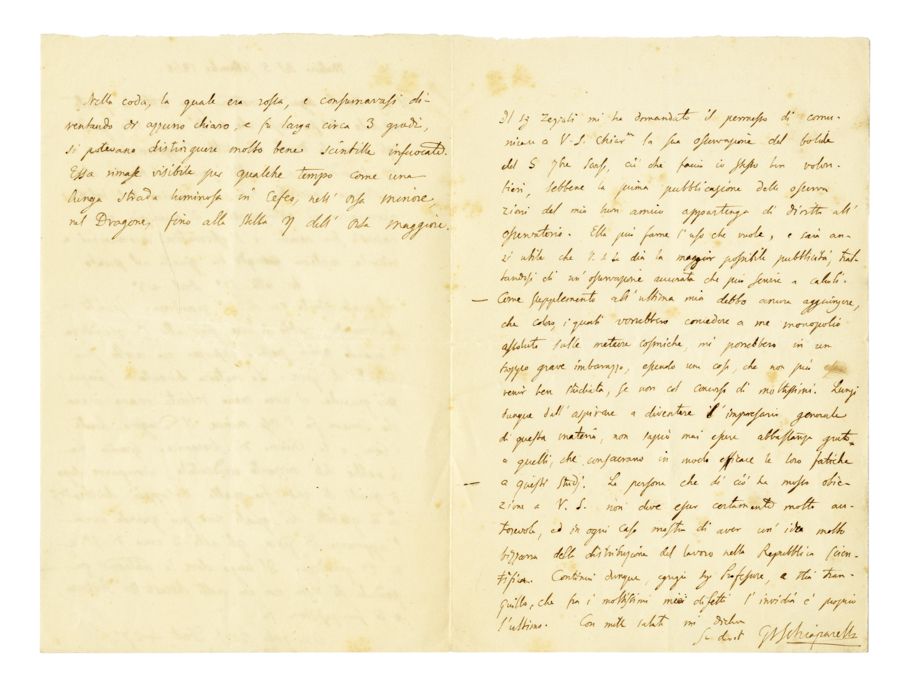 Nella coda, la quale era rossa, e consumavasi di-
ventando di azzurro chiaro, e fu larga circa 3 gradi,
si potevano distinguere molto bene scintille infuocate.
Essa rimase visibile per qualche tempo come una
lunga strada luminosa in Cefeo, nell' Orsa minore,
nel Dragone, fino alla stella η dell' Orsa maggiore.
Il Sg Zezioli mi ha domandato il permesso di comu-
nicare a V. S. Chiar.ma la sua osservazione del bolide
del 5 7bre scorso, ciò che faccio io stesso ben volon-
tieri, sebbene la prima pubblicazione delle osserva
zioni del mio buon amico appartenga di diritto all'
osservatorio. Ella può farne l'uso che vuole, e sarà an-
zi utile che V. S. dia la maggior possibile pubblicità, trat-
tandosi di un' osservazione accurata che può servire a calcoli.
Come supplemento all' ultima mia debbo ancora aggiungere,
che coloro, i quali vorrebbero concedere a me monopolio
assoluto sulle meteore cosmiche, mi porrebbero in un
troppo grave imbarazzo, essendo una cosa, che non può
venir ben studiata, se non col concorso di moltissimi. Lungi
dunque dall' aspirare a diventare l' impresario generale
di questa materia, non saprò mai essere abbastanza grato
a quelli, che consacrano in modo efficace le loro fatiche
a questi studj. La persona che di ciò ha mosso obie-
zione a V. S. non deve esser certamente molto au-
torevole, ed in ogni caso mostra di aver un' idea molto
bizzarra della distribuzione del lavoro nella Repubblica scien-
tifica. Continui dunque, egregio Sg Professore, e stia tran-
quillo, che fra i moltissimi miei difetti l' invidia è proprio
l'ultimo. Con mille saluti mi dichiaro
Suo devot GV Schiaparelli